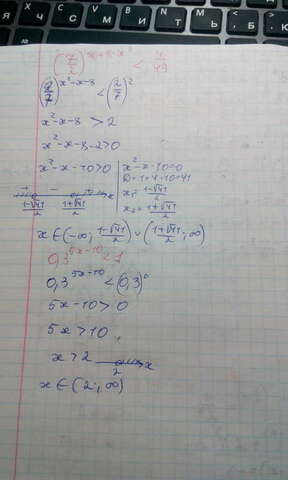 (7/2)^{x+8-x²} < 4/49
(2/7)^{x²-x-8} < (2/7)^2
x²-x-8 > 2
x²-x-8-2>0
x²-x-10>0 | x²-x-10=0
D=1+4·10=41
x₁=(1-√41)/2
x₂=(1+√41)/2
+ - + x
(1-√41)/2 (1+√41)/2
x∈(-∞; (1-√41)/2)∪((1+√41)/2; ∞)
0,3^{5x-10}<1
0,3^{5x-10}<(0,3)^0
5x-10>0
5x>10
x>2
2 x
x∈(2; ∞)